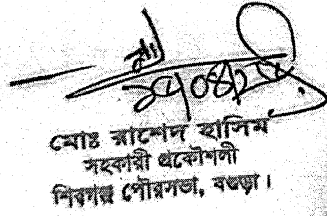 মোঃ রাশেদ হাসিম
সহকারী প্রকৌশলী
শিবগঞ্জ পৌরসভা, বগুড়া।